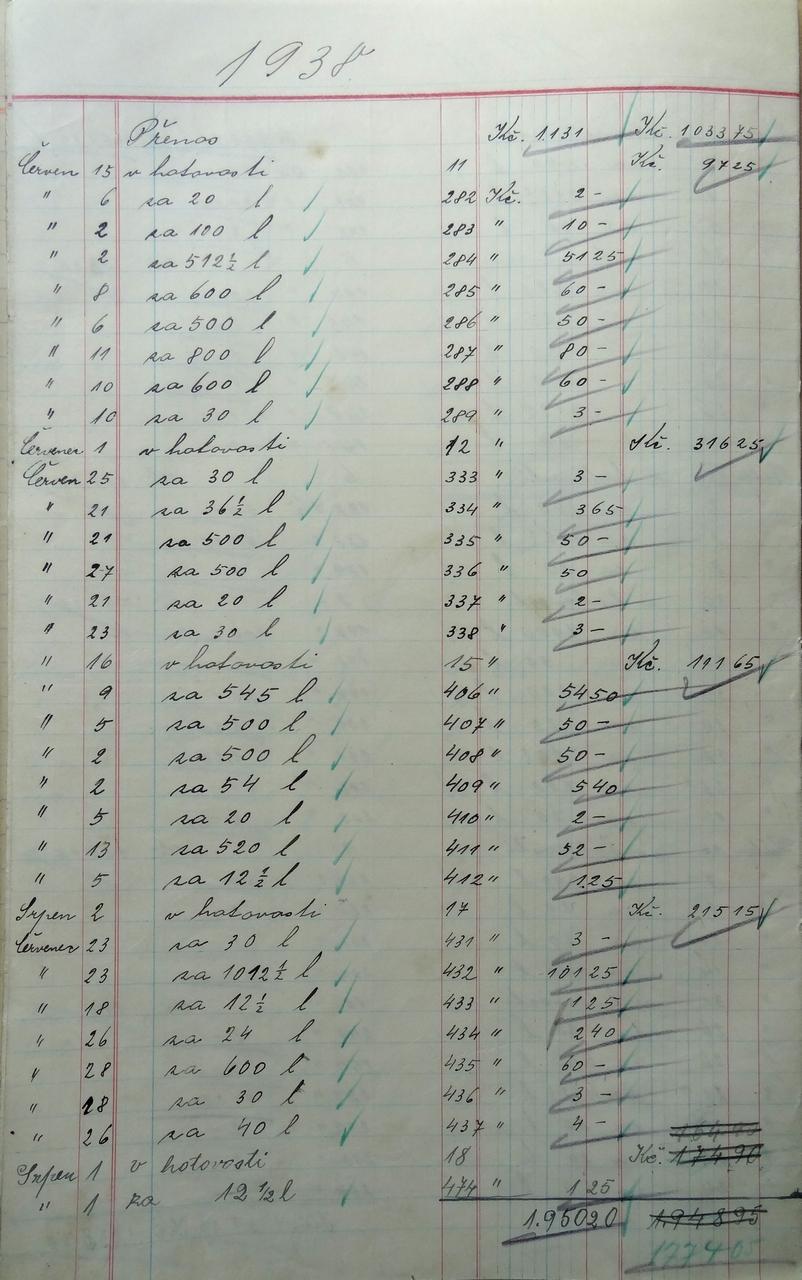 1938
Přenos Kč. 1.131 Kč. 1033 75
Červen 15 v hotovosti 11 Kč. 97 25
" 6 za 20 l 282 Kč. 2 -
" 2 za 100 l 283 " 10 -
" 2 za 512 ½ l 284 " 51 25
" 8 za 600 l 285 " 60 -
" 6 za 500 l 286 " 50 -
" 11 za 800 l 287 " 80 -
" 10 za 600 l 288 " 60 -
" 10 za 30 l 289 " 3 -
Červenec 1 v hotovosti 12 " Kč. 316 25
Červen 25 za 30 l 333 " 3 -
" 21 za 36 ½ l 334 " 3 65
" 21 za 500 l 335 " 50 -
" 27 za 500 l 336 " 50
" 21 za 20 l 337 " 2 -
" 23 za 30 l 338 " 3 -
" 16 v hotovosti 15 " Kč. 111 65
" 9 za 545 l 406 " 54 50
" 5 za 500 l 407 " 50 -
" 2 za 500 l 408 " 50 -
" 2 za 54 l 409 " 5 40
" 5 za 20 l 410 " 2 -
" 13 za 520 l 411 " 52 -
" 5 za 12 ½ l 412 " 1.25
Srpen 2 v hotovosti 17 Kč. 215 15
Červenec 23 za 30 l 431 " 3 -
" 23 za 1012 ½ l 432 " 101 25
" 18 za 12 ½ l 433 " 1 25
" 26 za 24 l 434 " 2 40
" 28 za 600 l 435 " 60 -
" 28 za 30 l 436 " 3 -
" 26 za 40 l 437 " 4 -
Srpen 1 v hotovosti 18 Kč. 174 90
" 1 za 12 ½ l 474 " 1 25
1.950 20 1.948 95
1774 05